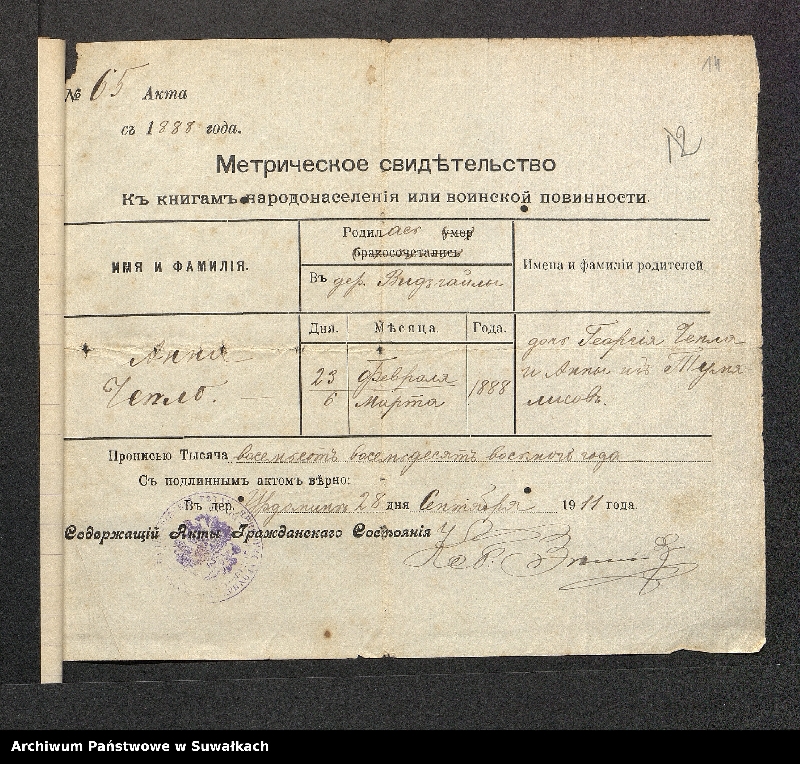 14
№ 65 Акта
съ 1888 года.
12
Метрическое свидѣтельство
Къ книгамъ народонаселенія или воинской повинности.
ИМЯ И ФАМИЛІЯ.
Родилась умер
бракосочетались
Въ дер. Видзгайлы
Имена и фамиліи родителей
Дня. Мѣсяца Года.
Анна
Чепло.
23 Февраля
6 Марта
1888
дочь Георгія Чепла
и Анны изъ
Прописью Тысяча восемьсотъ восемьдесятъ восьмого года
Съ подлиннымъ актомъ вѣрно:
Въ дер. 28 дня Сентября 1911 года.
Содержащій Акты Гражданскаго Состоянія
Archiwum Państwowe w Suwałkach